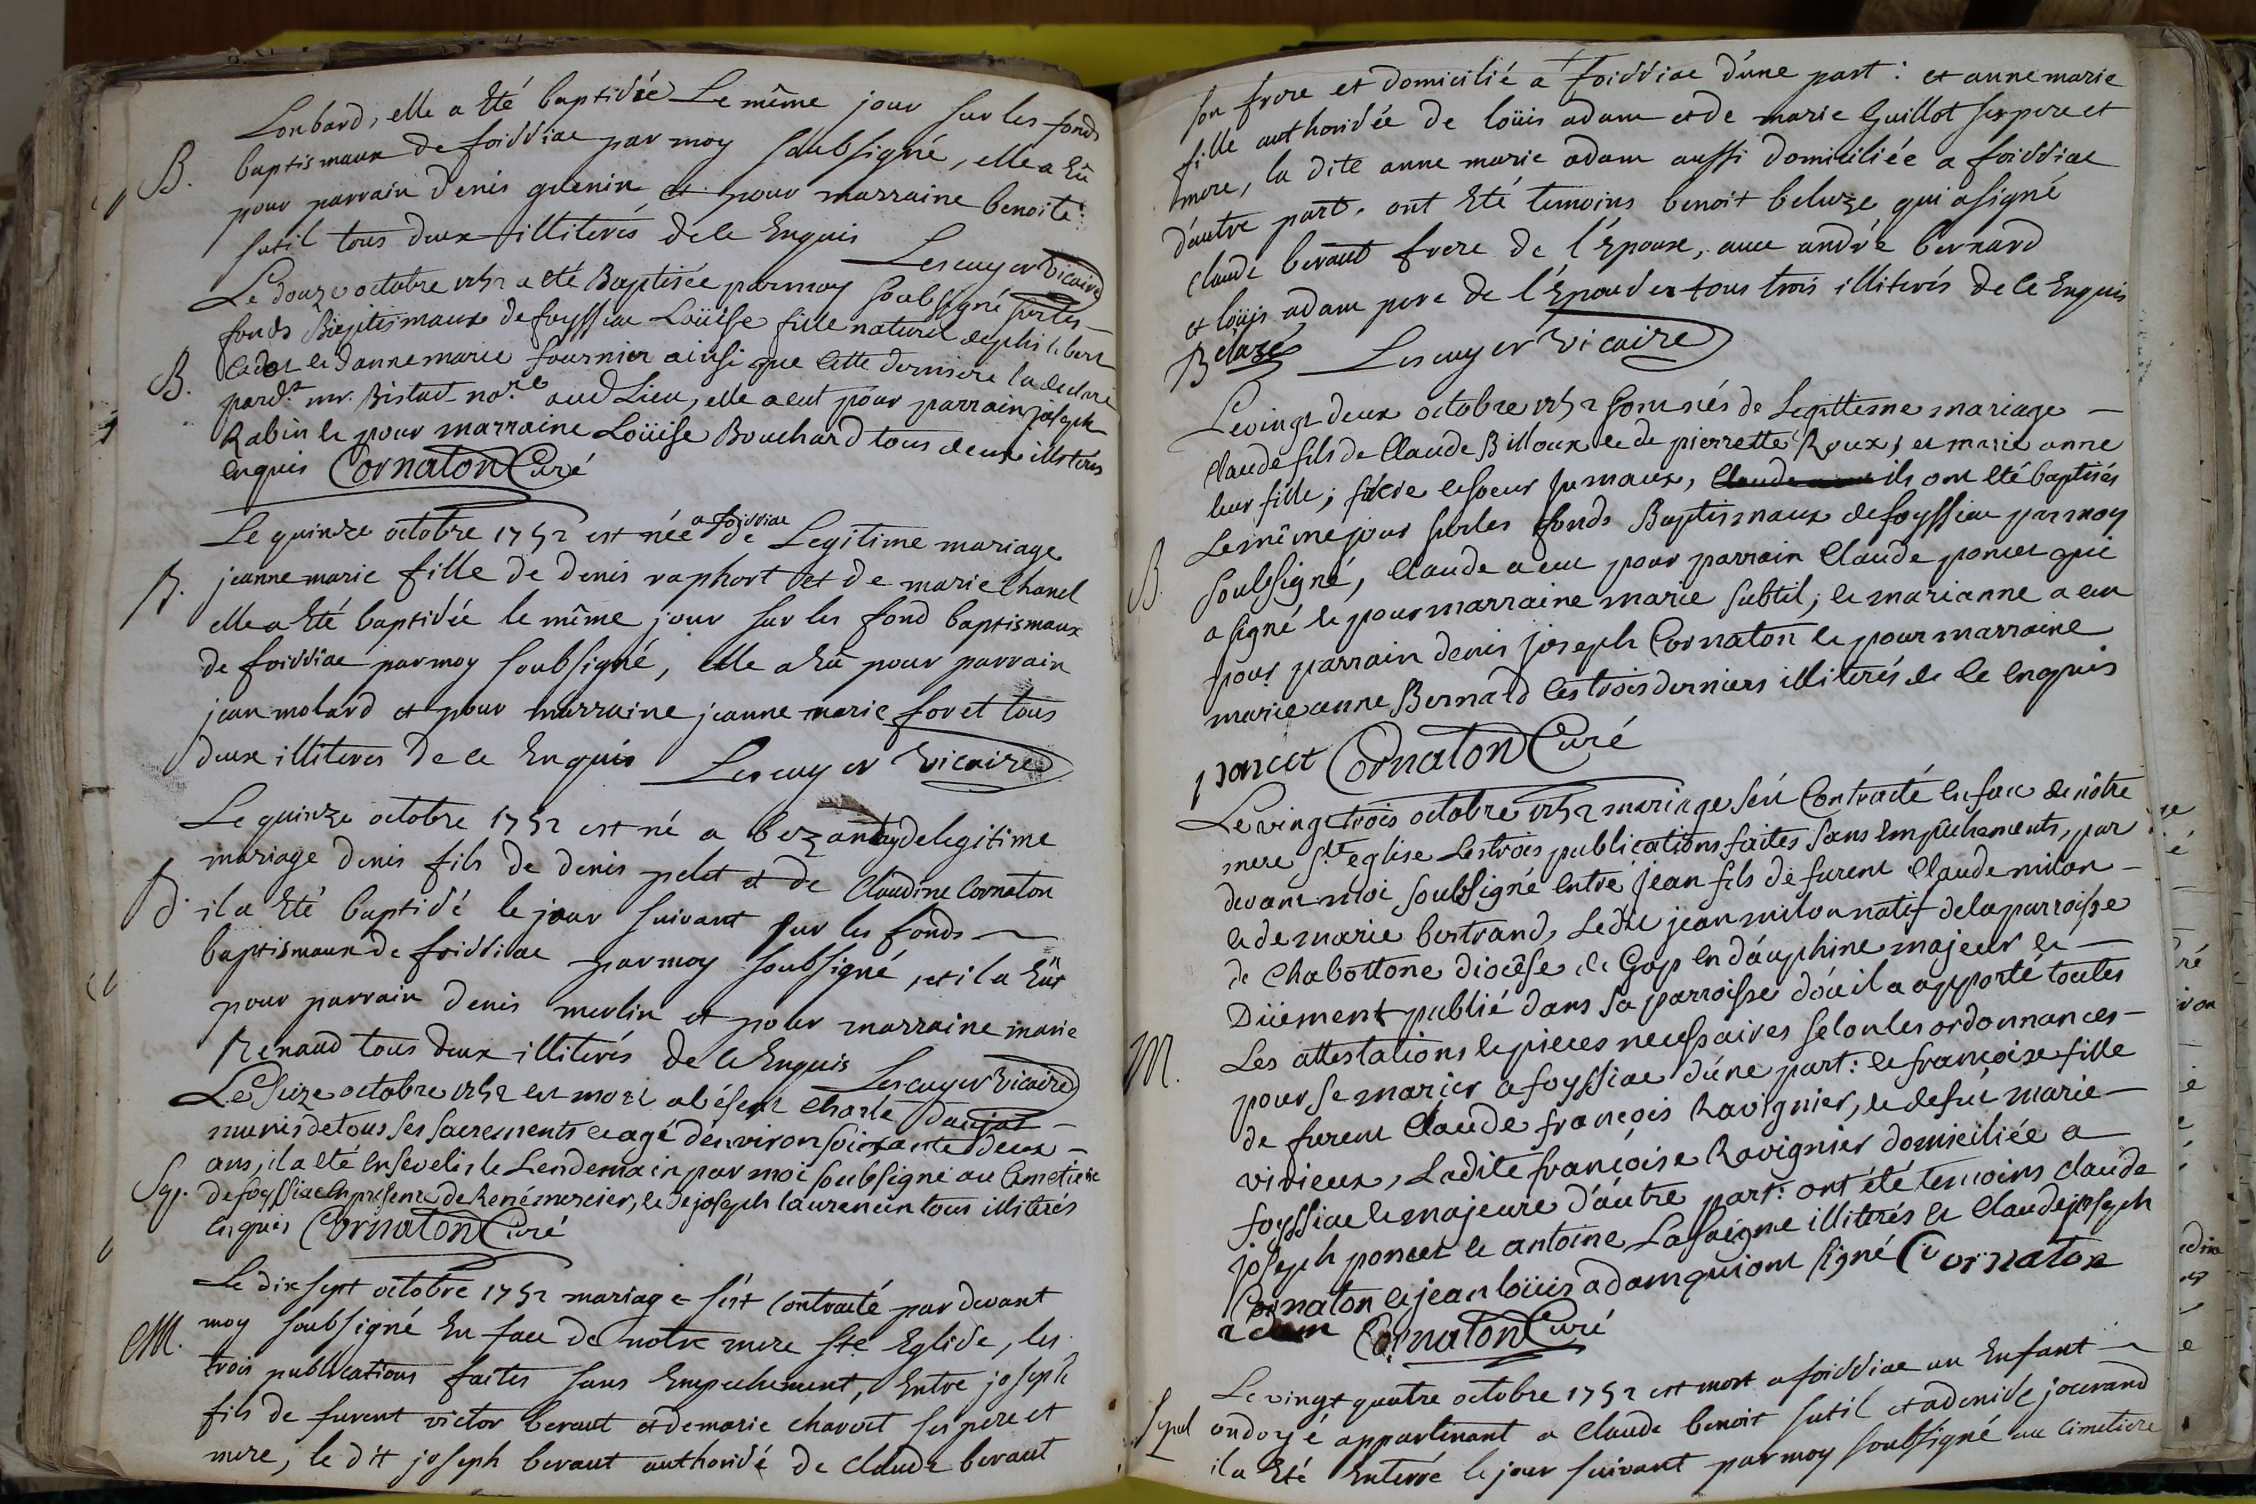 Lonbard, elle a été baptisée Le même jour sur les fonds
B. baptismaux de foissiac par moy soubsigné, elle a Eû
pour parrain denis guenin et pour marraine benoite
sutil tous deux illiterés de ce Enquis
Lescuyer vicaire
Le douze octobre 1752 a eté Baptisée par moy soubsigné sur les
fonds Baptismaux de foyssiac Loüise fille naturel de philibert
B. et d'anne marie fournier ainsi que cette derniere l'a declaré
pard.t mr. Bistad no.re aud Lieu, elle a eut pour parrain joseph
Rabin et pour marraine Loüise Bouchard tous deux illiterés
enquis Cornaton Curé
Le quinze octobre 1752 est née a foissiac de Legitime mariage
B. jeanne marie fille de denis raphort et de marie Chanel
elle a Eté baptisée le même jour sur les fond baptismaux
de foissiac par moy soubsigné, elle a Eû pour parrain
jean molard et pour marraine jeanne marie foret tous
deux illiteres de ce Enquis Lescuyer vicaire
Le quinze octobre 1752 est né a bezantuy de legitime
mariage denis fils de denis pelet et de Claudine Cornaton
B. il a Eté baptisé le jour suivant sur les fonds
baptismaux de foissiac par moy soubsigné, et il a Eût
pour parrain denis merlin et pour marraine marie
Renaud tous deux illiterés de ce Enquis
Lescuyer vicaire
Le Seize octobre 1752 est mort a bésent Charle daujat
munis de tous ses sacrements et agé d'environ soixante deux
ans, il a eté ensevelis le Lendemain par moi soubsigné au Cimetiere
Sep. de foyssiac en presence de René mercier, et de joseph laurencin tous illiterés
enquis Cornaton Curé
Le dix sept octobre 1752 mariage s'est contracté par devant
M. moy soubsigné En face de notre mere Ste Eglise, les
trois publications faites sans Empechement, Entre joseph
fils de furent victor beraut et de marie chavout ses pere et
mere, le dit joseph beraut authorisé de claude beraut
son frere et domicilié a foissiac d'une part : et anne marie
fille authorisée de loüis adam et de marie Guillot ses pere et
mere, la dite anne marie adam aussi domiciliée a foissiac
d'autre part. ont Eté temoins benoit beluze qui a signé
claude beraut frere de l'Epoux, avec andré bernard
et loüis adam pere de l'Epouse tous trois illiterés de ce Enquis
Beluze Lescuyer vicaire
Le vingt deux octobre 1752 sont nés de Legitteme mariage
Claude fils de Claude Billoux et de pierrette Roux, et marie anne
leur fille; frere et soeur Jumaux, ils ont eté baptisés
Le même jour sur les fonds Baptismaux de foyssiac par moy
B. soubsigné, Claude a eut pour parrain Claude poncet qui
a signé et pour marraine marie subtil, et marianne a eu
pour parrain denis joseph Cornaton et pour marraine
marie anne Bernard les trois derniers illiterés de ce enquis
poncet Cornaton Curé
Le vingt trois octobre 1752 mariage s'est Contracté en face de nôtre
mere Ste eglise Les trois publications faites sans empêchements, par
devant moi soubsigné entre jean fils de furent Claude milon
et de marie bertrand, Ledit jean milon natif de la parroisse
de Chabottone diocêse de Gap en d'auphine majeur et
Düement publié dans sa parroisse d'où il a apporté toutes
M. Les attestations et pieces necessaires selon les ordonnances
pour se marier a foyssiac d'une part : et françoise fille
de furent Claude françois Ravignier, et de fuë marie
vivieux, Ladite françoise Ravignier domiciliée a
foyssiac et majeure d'autre part : ont été temoins claude
joseph poncet et antoine Lasaigne illiterés et Claude joseph
Cornaton et jean loüis adam qui ont signé Cornaton
adam Cornaton Curé
Le vingt quatre octobre 1752 est mort a foissiac un Enfant
Sepul ondoyé appartenant a Claude benoit sutil et a denise jouvand
il a Eté Enterré le jour suivant par moy soubsigné au cimetiere